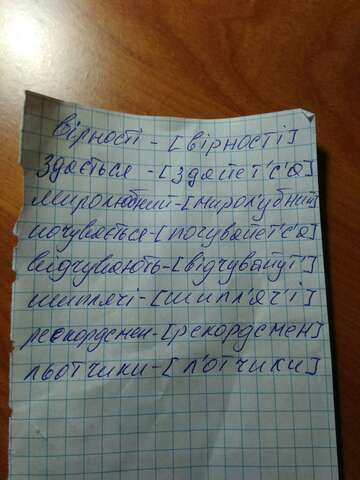 вірності - [вірності]
здається - [здайет'с'а]
миролюбний - [мирол'убний]
почувається - [почувайет'с'а]
відчувають - [відчувайут']
шиплячі - [шипл'ач'і]
рекордсмен - [рекордсмен]
льотчики - [л'отчики]